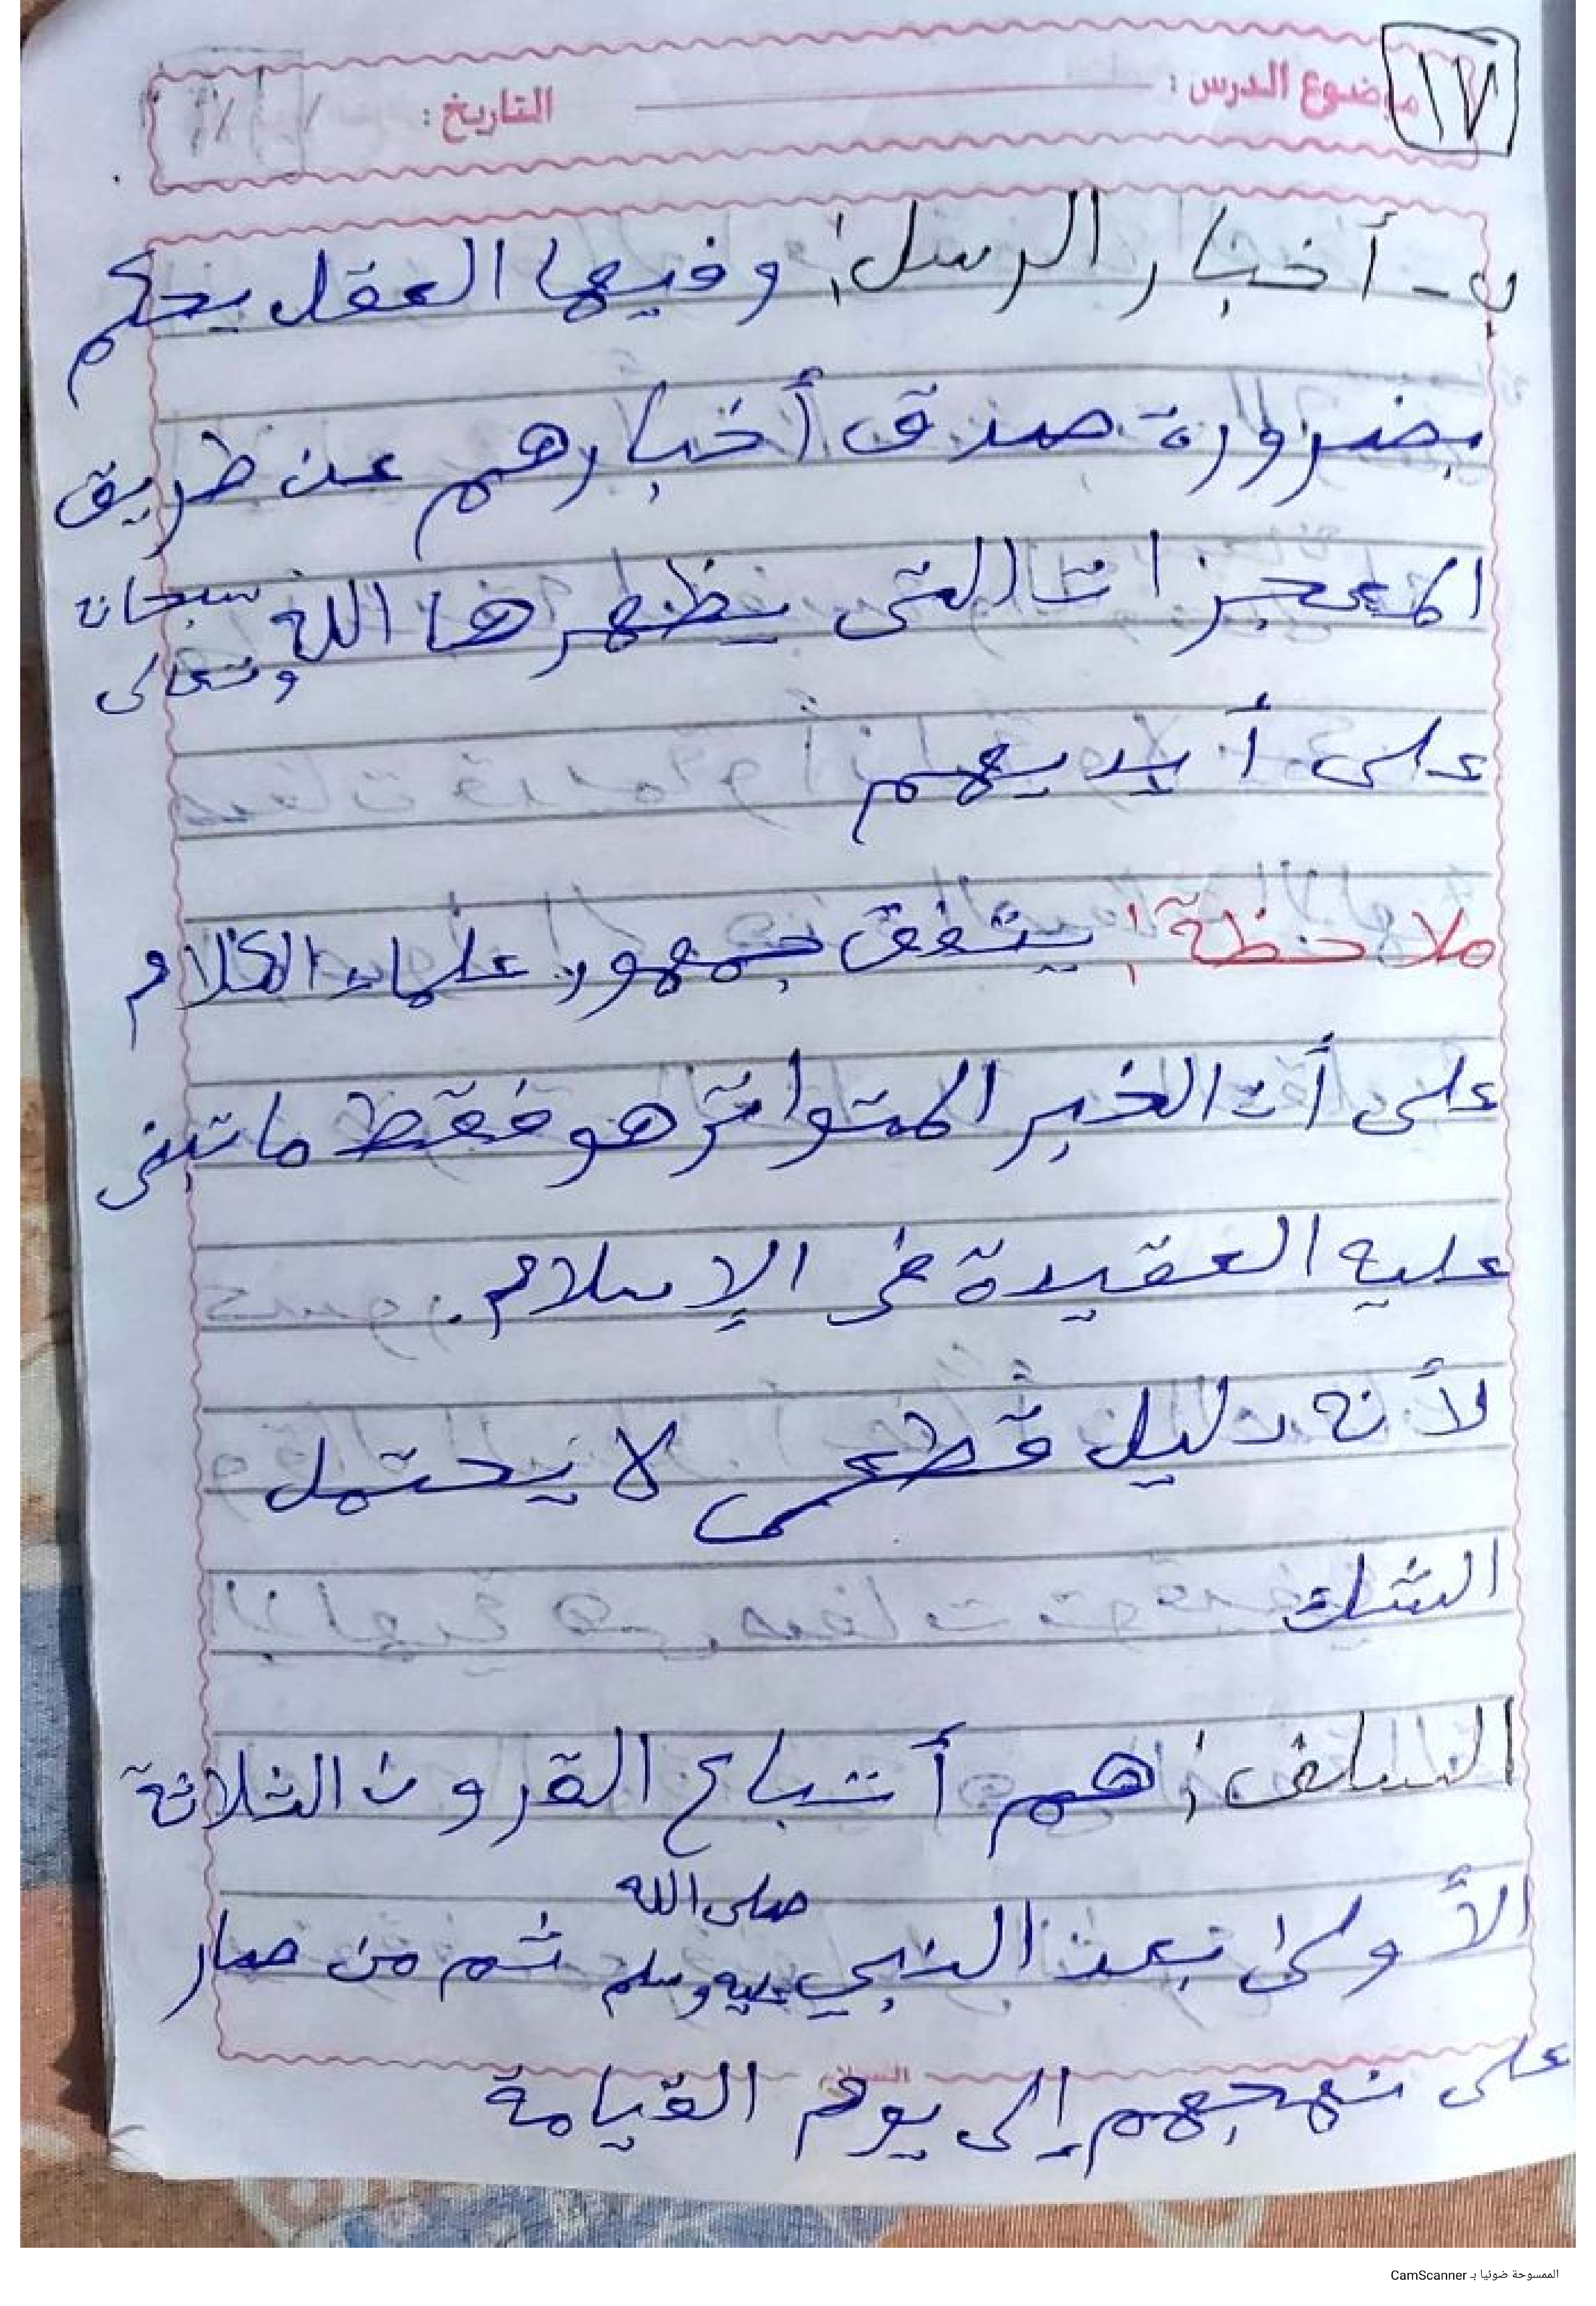 ١٧
موضوع الدرس : التاريخ : / /
ب - أخبار الرسل: وفيها العقل يحكم
بضرورة صدق أخبارهم عن طريق
المعجزات التى يظهرها الله سبحانه
وتعالى
على أيديهم
ملاحظة: يتفق جمهور علماء الكلام
على أن الخبر المتواتر هو فقط ما تبنى
عليه العقيدة فى الإسلام.
لأنه دليل قطعى لا يحتمل
الشك
السلف: هم أتباع القرون الثلاثة
الأولى بعد النبي صلى الله عليه وسلم ثم من صار
على نهجهم إلى يوم القيامة
الممسوحة ضوئيا بـ CamScanner